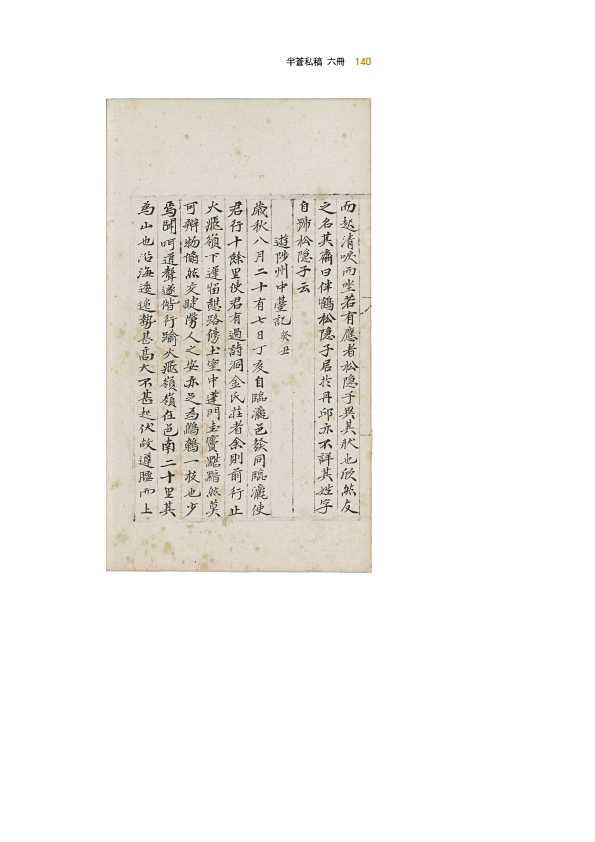 半蒼私稿 六冊 140
而起清唳而坐若有應者松隐子異其狀也欣然友
之名其齋曰伴鶴松隐子居於丹邱亦不詳其姓字
自號松隐子云
遊陟州中臺記 癸丑
歳秋八月二十有七日丁亥自臨瀛邑發同臨瀛使
君行十餘里使君有過詩洞金氏莊者余則前行止
火飛嶺下邅恒憇路傍土室中蓬門圭竇黯黯然莫
可辨物偹然交睫勞人之安亦足為鷦鷯一枝也少
焉聞呵道聲遂偕行踰火飛嶺嶺在邑南二十里其
為山也沿海逶迤勢甚高大不甚起伏故遵隴而上